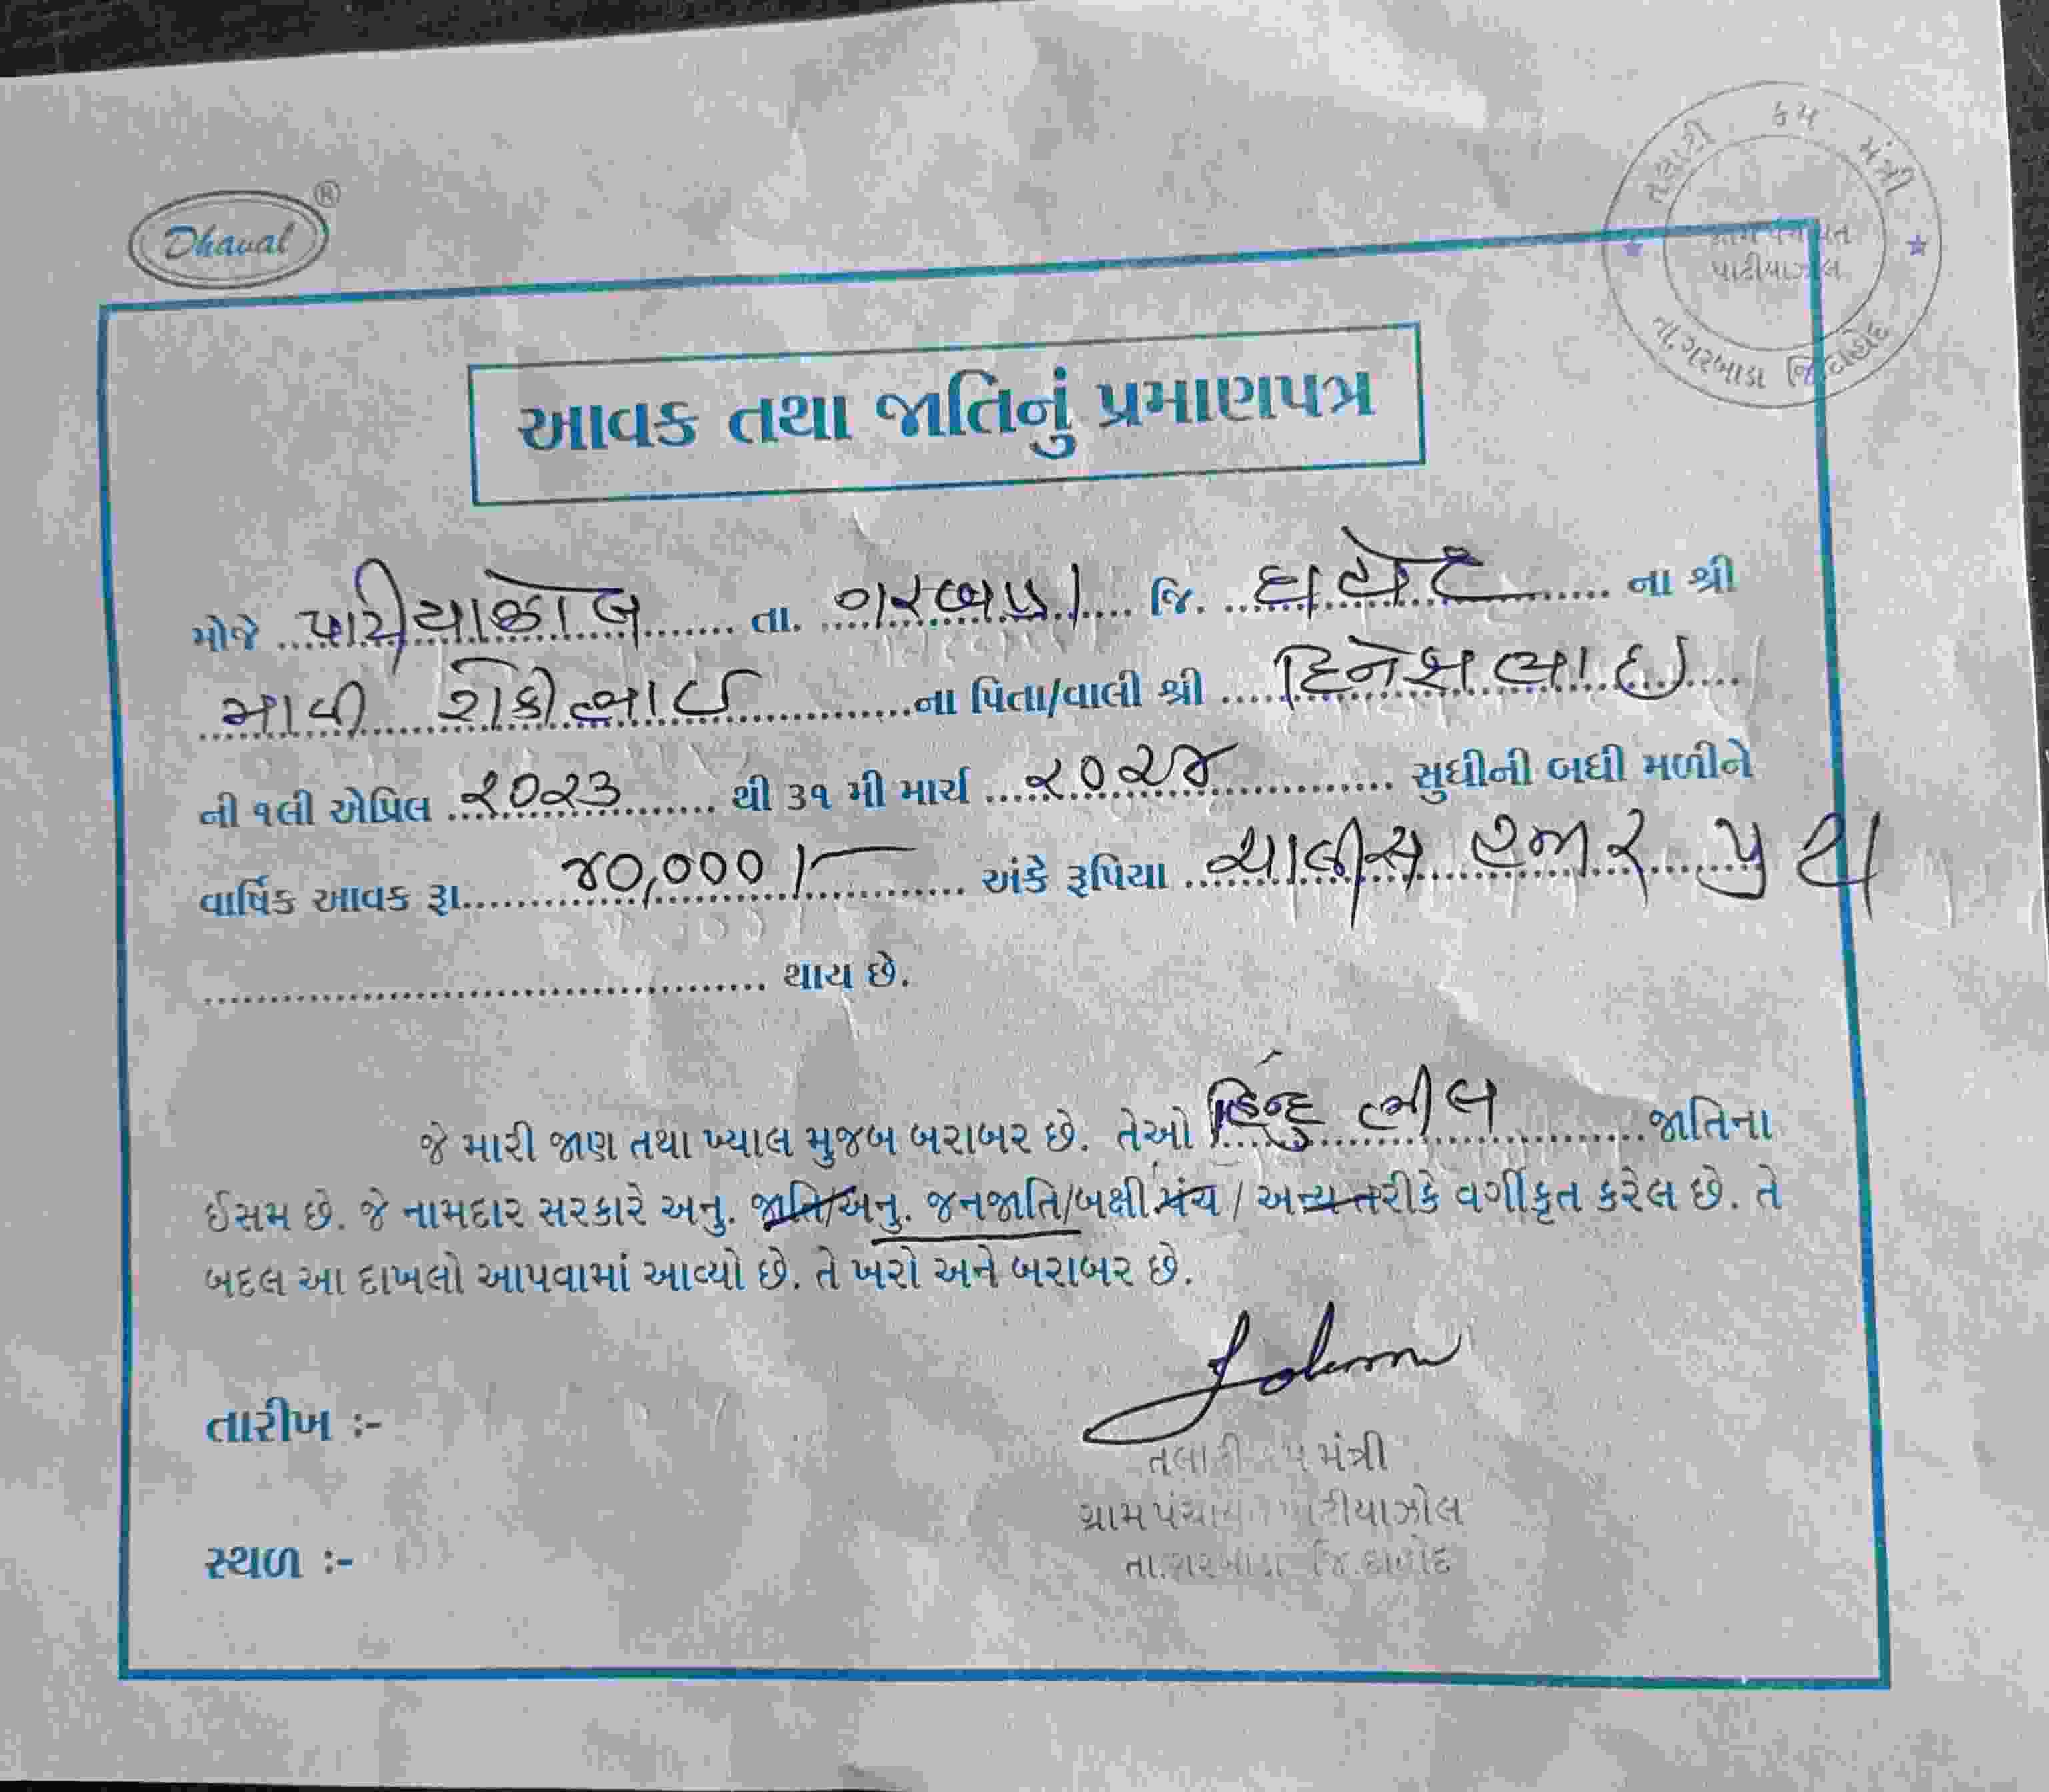 Dhaval ®
તલાટી કમ મંત્રી
ગ્રામ પંચાયત
પાટીયાઝોલ
તા.ગરબાડા જિ.દાહોદ
આવક તથા જાતિનું પ્રમાણપત્ર
મોજે પાટીયાઝોલ તા. ગરબાડા જિ. દાહોદ ના શ્રી
માવી ના પિતા/વાલી શ્રી દિનેશભાઇ
ની ૧લી એપ્રિલ ૨૦૨૩ થી ૩૧ મી માર્ચ ૨૦૨૪ સુધીની બધી મળીને
વાર્ષિક આવક રૂા. ૪૦,૦૦૦/- અંકે રૂપિયા ચાલીસ હજાર પુરા
થાય છે.
જે મારી જાણ તથા ખ્યાલ મુજબ બરાબર છે. તેઓ હિન્દુ ભીલ જાતિના
ઈસમ છે. જે નામદાર સરકારે અનુ. જાતિ/અનુ. જનજાતિ/બક્ષી પંચ / અન્ય તરીકે વર્ગીકૃત કરેલ છે. તે
બદલ આ દાખલો આપવામાં આવ્યો છે. તે ખરો અને બરાબર છે.
તારીખ :-
તલાટી કમ મંત્રી
ગ્રામ પંચાયત પાટીયાઝોલ
તા.ગરબાડા જિ.દાહોદ
સ્થળ :-